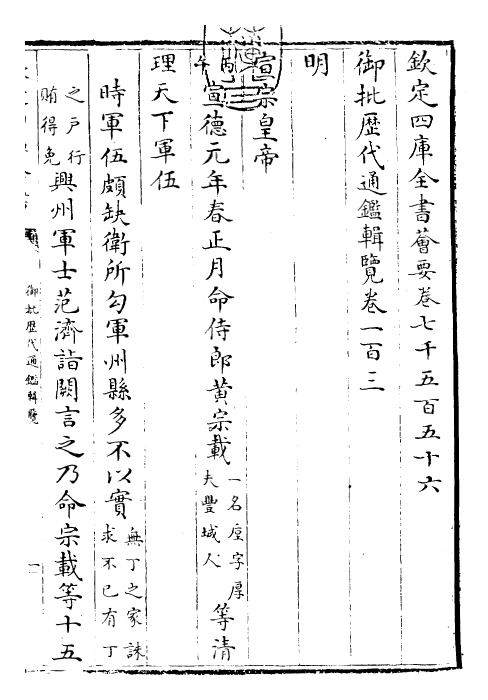 欽定四庫全書薈要卷七千五百五十六
御批歷代通鑑輯覽卷一百三
明
宣宗皇帝
丙午宣德元年春正月命侍郎黄宗載一名垕字厚夫豐城人等清
理天下軍伍
時軍伍頗缺衛所勾軍州縣多不以實無丁之家誅求不已有丁
之戸行賄得免興州軍士范濟詣闕言之乃命宗載等十五
御批歷代通鑑輯覽
一